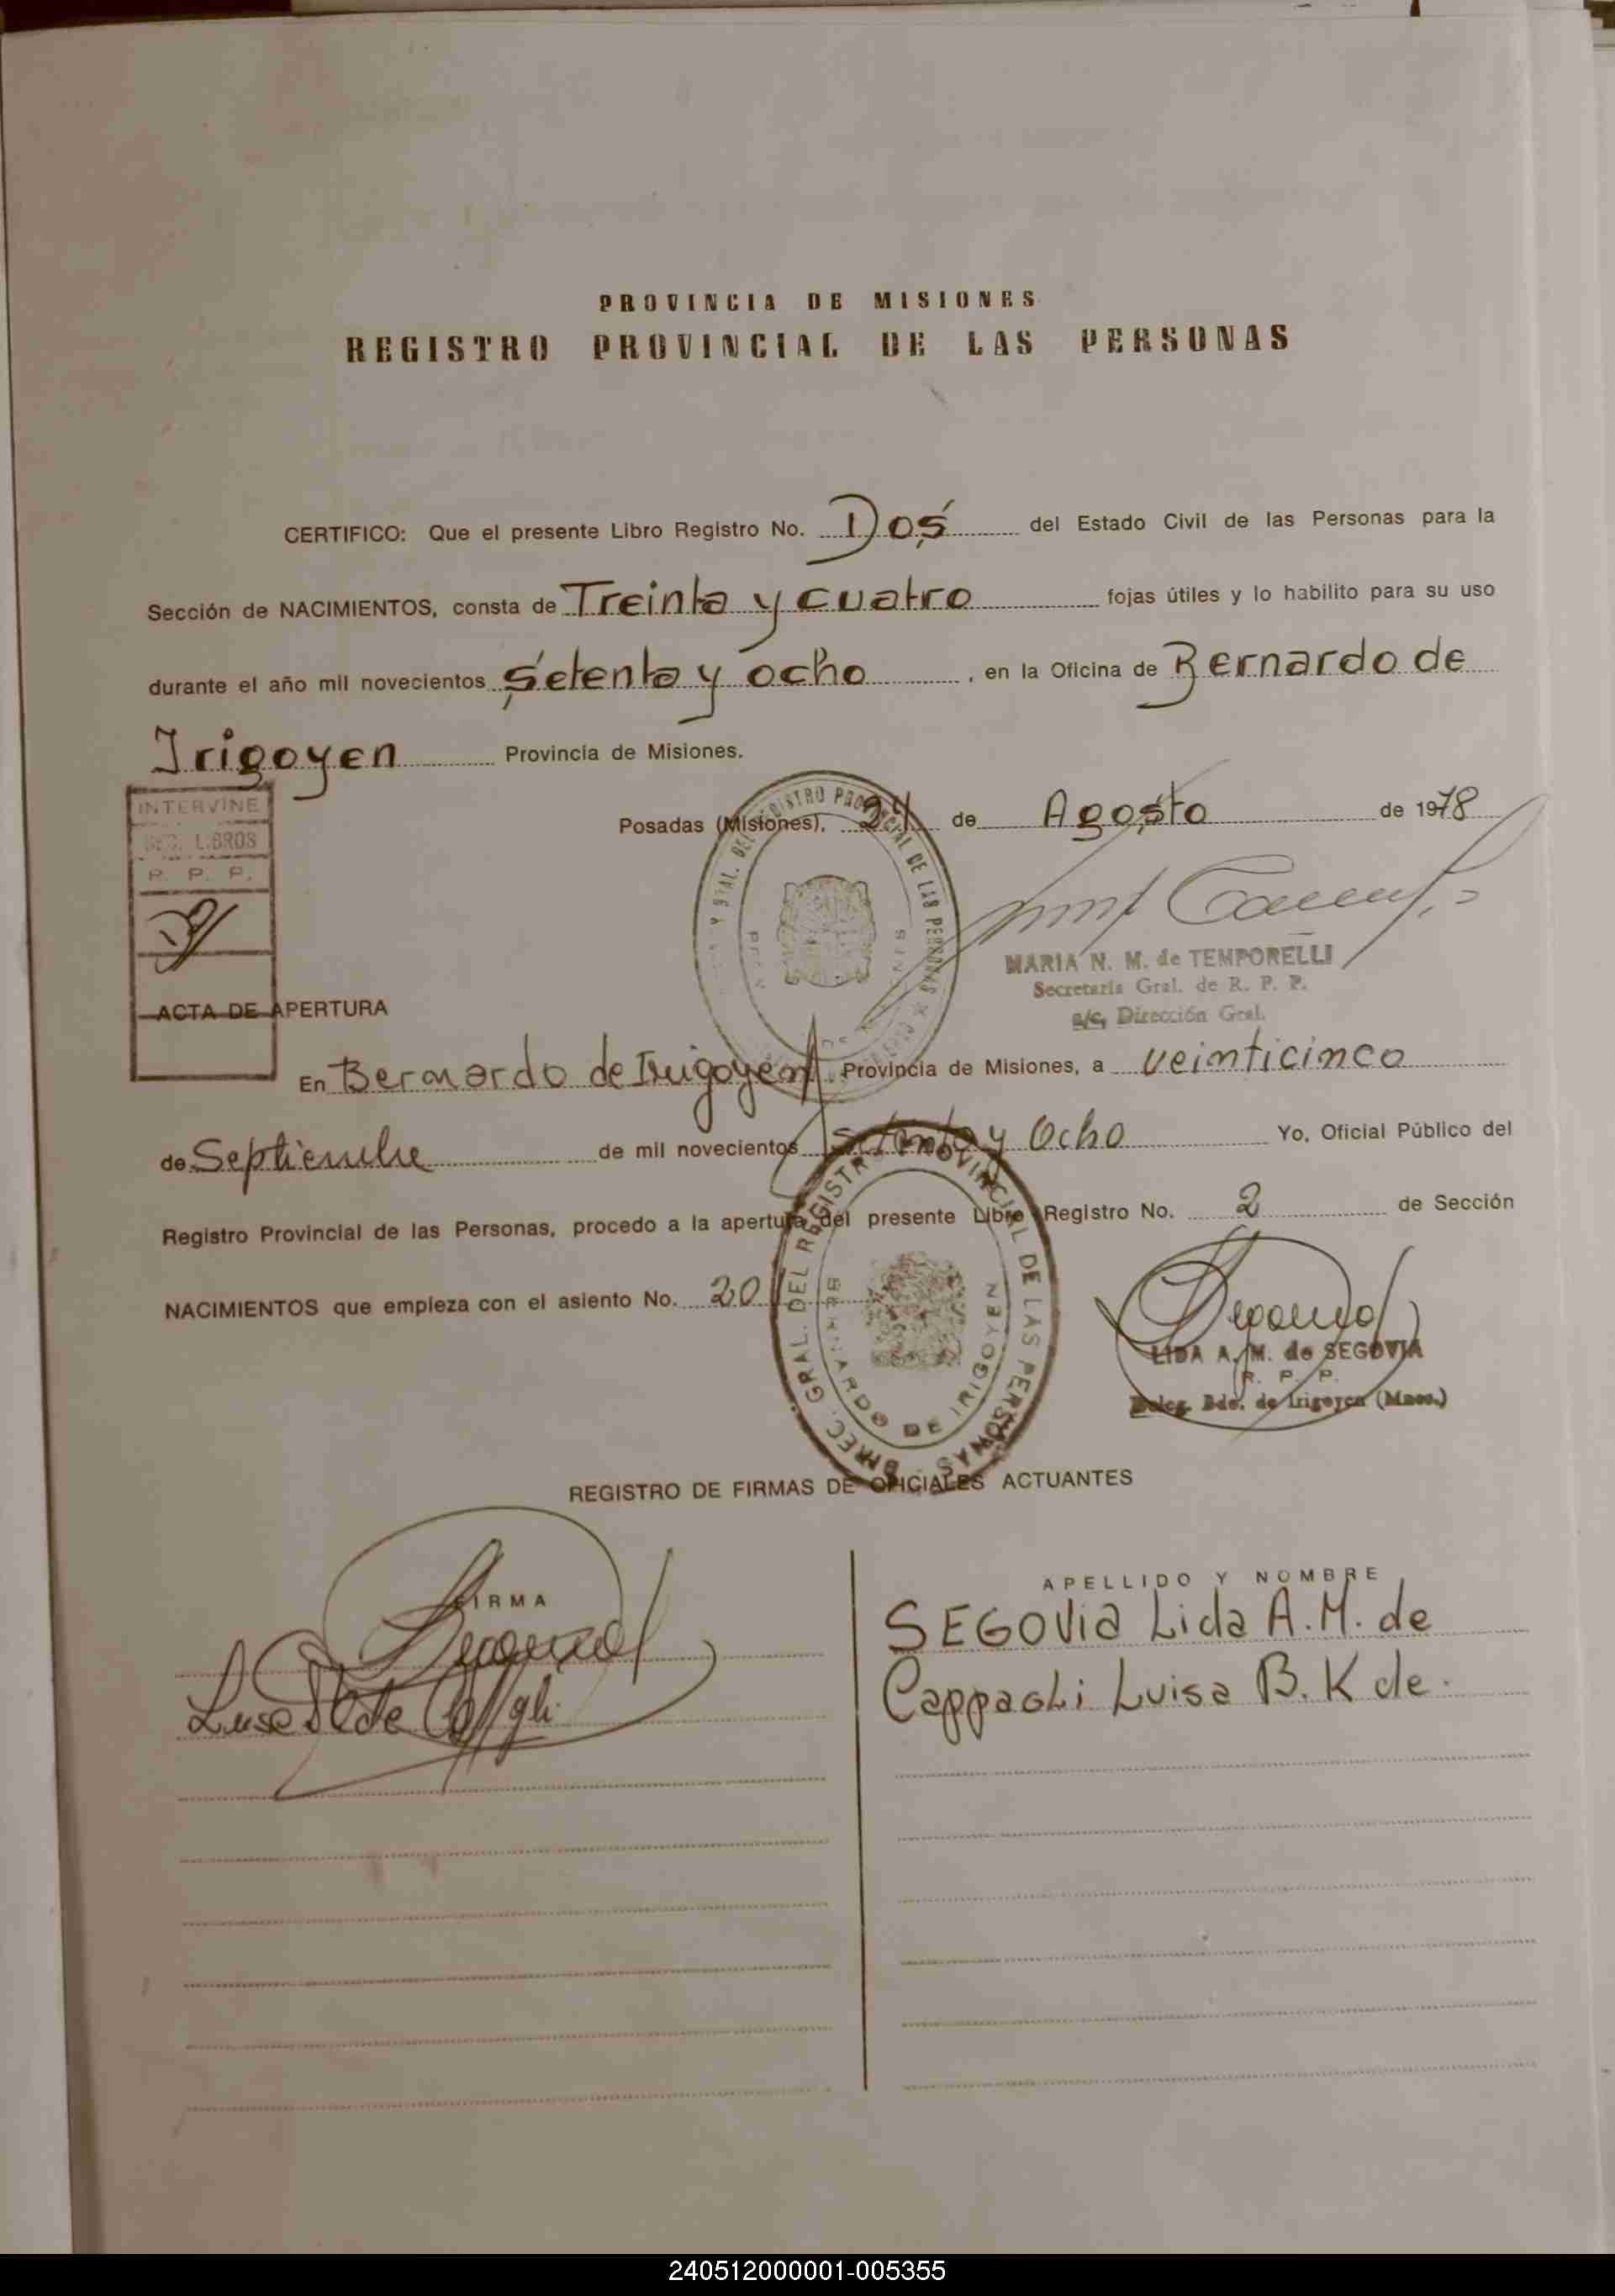 PROVINCIA DE MISIONES
REGISTRO PROVINCIAL DE LAS PERSONAS
CERTIFICO: Que el presente Libro Registro No. Dos del Estado Civil de las Personas para la
Sección de NACIMIENTOS, consta de Treinta y cuatro fojas útiles y lo habilito para su uso
durante el año mil novecientos Setenta y ocho, en la Oficina de Bernardo de
Irigoyen Provincia de Misiones.
Posadas (Misiones), de Agosto de 1978
INTERVINE
LIBROS
R. P. P.
MARIA N. M. de TEMPORELLI
Secretaria Gral. de R. P. P.
a/c, Dirección Gral.
ACTA DE APERTURA
En Bernardo de Irigoyen, Provincia de Misiones, a veinticinco
de Septiembre de mil novecientos Setenta y Ocho Yo, Oficial Público del
Registro Provincial de las Personas, procedo a la apertura del presente Libro Registro No. 2 de Sección
NACIMIENTOS que empieza con el asiento No. 201
DIREC. GRAL. DEL REGISTRO PROVINCIAL DE LAS PERSONAS
BERNARDO DE IRIGOYEN
LIDA A. M. de SEGOVIA
R. P. P.
Deleg. Bdo. de Irigoyen (Mnes.)
REGISTRO DE FIRMAS DE OFICIALES ACTUANTES
FIRMA
APELLIDO Y NOMBRE
SEGOVIA Lida A. M. de
Cappagli Luisa B. K de.
240512000001-005355